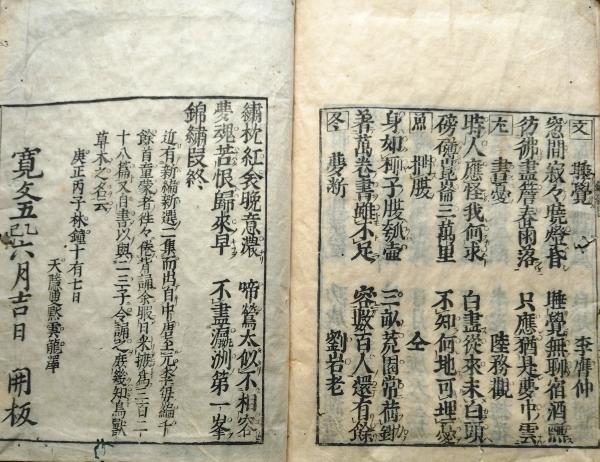 文 睡覺 李庠仲
窓間寂々曉燈昏 睡覺無聊宿酒醺
彷彿畫簷春雨落 只應猶是夢巾雲
左 書憂 陸務觀
時人應怪我何求 白盡從來未白頭
磅礴崑崙三萬里 不知何地可埋憂
捫腹 仝
身如椰子腹瓠壺 三畝荒園常荷鋤
著萬卷書雖不足 容數百人還有餘
冬 夢断 劉岩老
繡枕紅衾晚意濃 啼鶯太似不相容
夢魂苦恨歸來早 不盡瀛洲第一峯
錦繡段終
近有新編新選二集而出自中唐至元季毎編千
餘首童蒙者往々倦背誦余暇日采摭為三百二
十八篇又自書以與二三子令誦之庶幾知鳥獸
草木之名云
庚正丙子林鐘十有七日
天隱 默雲龍澤
寛文五乙巳六月吉日 開板